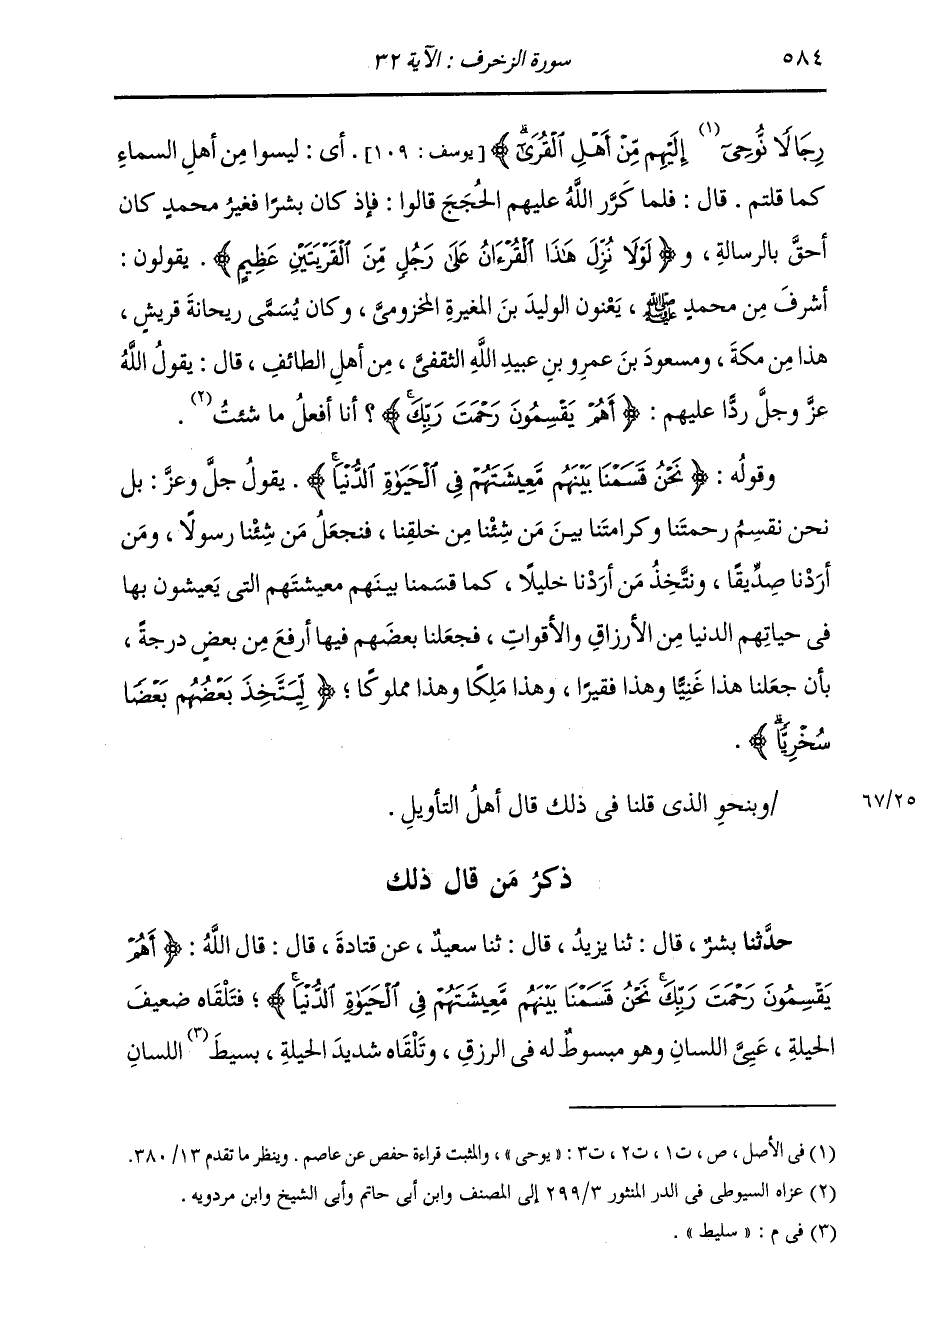 ٥٨٤ سورة الزخرف : الآية ٣٢
رِجَالًا نُّوحِىٓ(١) إِلَيْهِم مِّنْ أَهْلِ ٱلْقُرَىٰٓۗ﴾ [يوسف : ١٠٩] . أى : ليسوا مِن أهلِ السماءِ
كما قلتم . قال : فلما كَرَّر اللَّهُ عليهم الحُجَجَ قالوا : فإذ كان بشرًا فغيرُ محمدٍ كان
أحقَّ بالرسالةِ ، و﴿ لَوْلَا نُزِّلَ هَٰذَا ٱلْقُرْءَانُ عَلَىٰ رَجُلٍ مِّنَ ٱلْقَرْيَتَيْنِ عَظِيمٍ ﴾ . يقولون :
أشرفَ مِن محمدٍ ﷺ ، يَعْنون الوليدَ بنَ المغيرةِ المخزومىَّ ، وكان يُسَمَّى ريحانةَ قريشٍ ،
هذا مِن مكةَ ، ومسعودَ بنَ عمرِو بنِ عبيدِ اللَّهِ الثقفىَّ ، مِن أهلِ الطائفِ ، قال : يقولُ اللَّهُ
عزَّ وجلَّ ردًّا عليهم : ﴿ أَهُمْ يَقْسِمُونَ رَحْمَتَ رَبِّكَۚ ﴾ ؟ أنا أفعلُ ما شئتُ(٢) .
وقولُه : ﴿ نَحْنُ قَسَمْنَا بَيْنَهُم مَّعِيشَتَهُمْ فِى ٱلْحَيَوٰةِ ٱلدُّنْيَاۚ ﴾ . يقولُ جلَّ وعزَّ : بل
نحن نقسِمُ رحمتَنا وكرامتَنا بينَ مَن شِئْنا مِن خلقِنا ، فنجعَلُ مَن شِئْنا رسولًا ، ومَن
أرَدْنا صِدِّيقًا ، ونتَّخِذُ مَن أرَدْنا خليلًا ، كما قسَمنا بينَهم معيشتَهم التى يَعيشون بها
فى حياتِهم الدنيا مِن الأرزاقِ والأقواتِ ، فجعَلنا بعضَهم فيها أرفعَ مِن بعضٍ درجةً ،
بأن جعَلنا هذا غَنِيًّا وهذا فقيرًا ، وهذا مَلِكًا وهذا مملوكًا ؛ ﴿ لِّيَتَّخِذَ بَعْضُهُم بَعْضًا
سُخْرِيًّاۗ ﴾ .
/وبنحوِ الذى قلنا فى ذلك قال أهلُ التأويلِ . ٦٧/٢٥
ذكرُ مَن قال ذلك
حدَّثنا بشرٌ ، قال : ثنا يزيدُ ، قال : ثنا سعيدٌ ، عن قتادةَ ، قال : قال اللَّهُ : ﴿ أَهُمْ
يَقْسِمُونَ رَحْمَتَ رَبِّكَۚ نَحْنُ قَسَمْنَا بَيْنَهُم مَّعِيشَتَهُمْ فِى ٱلْحَيَوٰةِ ٱلدُّنْيَاۚ ﴾ ؛ فتَلْقَاه ضعيفَ
الحيلةِ ، عَيِىَّ اللسانِ وهو مبسوطٌ له فى الرزقِ ، وتَلْقَاه شديدَ الحيلةِ ، بسيطَ(٣) اللسانِ
(١) فى الأصل ، ص ، ت١ ، ت٢ ، ت٣ : «يوحى» ، والمثبت قراءة حفص عن عاصم . وينظر ما تقدم ١٣/ ٣٨٠.
(٢) عزاه السيوطى فى الدر المنثور ٢٩٩/٣ إلى المصنف وابن أبى حاتم وأبى الشيخ وابن مردويه .
(٣) فى م : « سليط » .